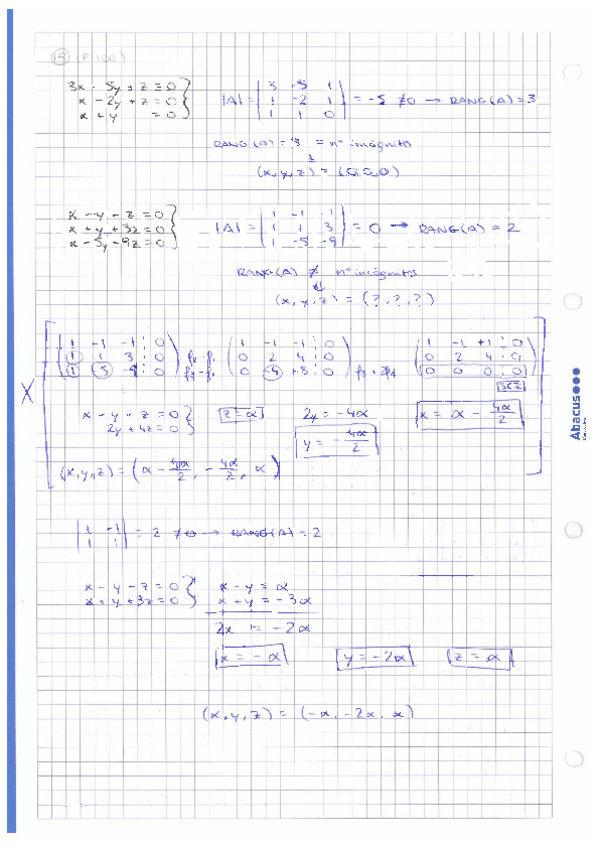 19 (P.108)
3x - 5y + z = 0
x - 2y + z = 0
x + y = 0
|A| = | 3 -5 1 | 1 -2 1 | 1 1 0 | = -5 ≠0 → RANG(A) = 3
RANG(A) = 3 = nº incògnites
(x, y, z) = (0, 0, 0)
x - y - z = 0
x + y + 3z = 0
x - 5y - 9z = 0
|A| = | 1 -1 -1 | 1 1 3 | 1 -5 -9 | = 0 → RANG(A) = 2
RANG(A) ≠ nº incògnites
(x, y, z) = (?, ?, ?)
1 -1 -1 0
1 1 3 0
1 0
1 -1 -1 0
0 2 4 0
0 0
1 -1 +1 0
0 2 4 0
0 0 0 0
X
x - y - z = 0
2y + 4z = 0
z = α
2y = -4α
y = - 4α/2
x = α - 4α/2
(x, y, z) = (α - 4α/2, - 4α/2, α)
| 1 -1 | 1 1 | = 2 ≠0 → RANG(A) = 2
x - y - z = 0
x + y + 3z = 0
x - y = α
x + y = -3α
2x = -2α
x = -α
y = -2α
z = α
(x, y, z) = (-α, -2α, α)
Abacus